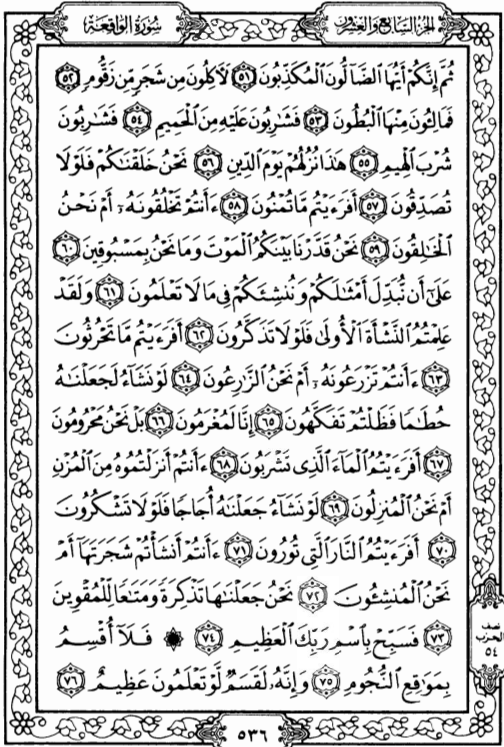 سُورَةُ الوَاقِعَةِ
الجُزْءُ السَّابِعُ وَالعِشْرُونَ
ثُمَّ إِنَّكُمْ أَيُّهَا ٱلضَّآلُّونَ ٱلْمُكَذِّبُونَ ٥١ لَءَاكِلُونَ مِن شَجَرٍ مِّن زَقُّومٍ ٥٢
فَمَالِـُٔونَ مِنْهَا ٱلْبُطُونَ ٥٣ فَشَٰرِبُونَ عَلَيْهِ مِنَ ٱلْحَمِيمِ ٥٤ فَشَٰرِبُونَ
شُرْبَ ٱلْهِيمِ ٥٥ هَٰذَا نُزُلُهُمْ يَوْمَ ٱلدِّينِ ٥٦ نَحْنُ خَلَقْنَٰكُمْ فَلَوْلَا
تُصَدِّقُونَ ٥٧ أَفَرَءَيْتُم مَّا تُمْنُونَ ٥٨ ءَأَنتُمْ تَخْلُقُونَهُۥٓ أَمْ نَحْنُ
ٱلْخَٰلِقُونَ ٥٩ نَحْنُ قَدَّرْنَا بَيْنَكُمُ ٱلْمَوْتَ وَمَا نَحْنُ بِمَسْبُوقِينَ ٦٠
عَلَىٰٓ أَن نُّبَدِّلَ أَمْثَٰلَكُمْ وَنُنشِئَكُمْ فِى مَا لَا تَعْلَمُونَ ٦١ وَلَقَدْ
عَلِمْتُمُ ٱلنَّشْأَةَ ٱلْأُولَىٰ فَلَوْلَا تَذَكَّرُونَ ٦٢ أَفَرَءَيْتُم مَّا تَحْرُثُونَ
٦٣ ءَأَنتُمْ تَزْرَعُونَهُۥٓ أَمْ نَحْنُ ٱلزَّٰرِعُونَ ٦٤ لَوْ نَشَآءُ لَجَعَلْنَٰهُ
حُطَٰمًا فَظَلْتُمْ تَفَكَّهُونَ ٦٥ إِنَّا لَمُغْرَمُونَ ٦٦ بَلْ نَحْنُ مَحْرُومُونَ
٦٧ أَفَرَءَيْتُمُ ٱلْمَآءَ ٱلَّذِى تَشْرَبُونَ ٦٨ ءَأَنتُمْ أَنزَلْتُمُوهُ مِنَ ٱلْمُزْنِ
أَمْ نَحْنُ ٱلْمُنزِلُونَ ٦٩ لَوْ نَشَآءُ جَعَلْنَٰهُ أُجَاجًا فَلَوْلَا تَشْكُرُونَ
٧٠ أَفَرَءَيْتُمُ ٱلنَّارَ ٱلَّتِى تُورُونَ ٧١ ءَأَنتُمْ أَنشَأْتُمْ شَجَرَتَهَآ أَمْ
نَحْنُ ٱلْمُنشِـُٔونَ ٧٢ نَحْنُ جَعَلْنَٰهَا تَذْكِرَةً وَمَتَٰعًا لِّلْمُقْوِينَ
٧٣ فَسَبِّحْ بِٱسْمِ رَبِّكَ ٱلْعَظِيمِ ٧٤ ۞ فَلَآ أُقْسِمُ
بِمَوَٰقِعِ ٱلنُّجُومِ ٧٥ وَإِنَّهُۥ لَقَسَمٌ لَّوْ تَعْلَمُونَ عَظِيمٌ ٧٦
نصف
الحزب
٥٤
٥٣٦